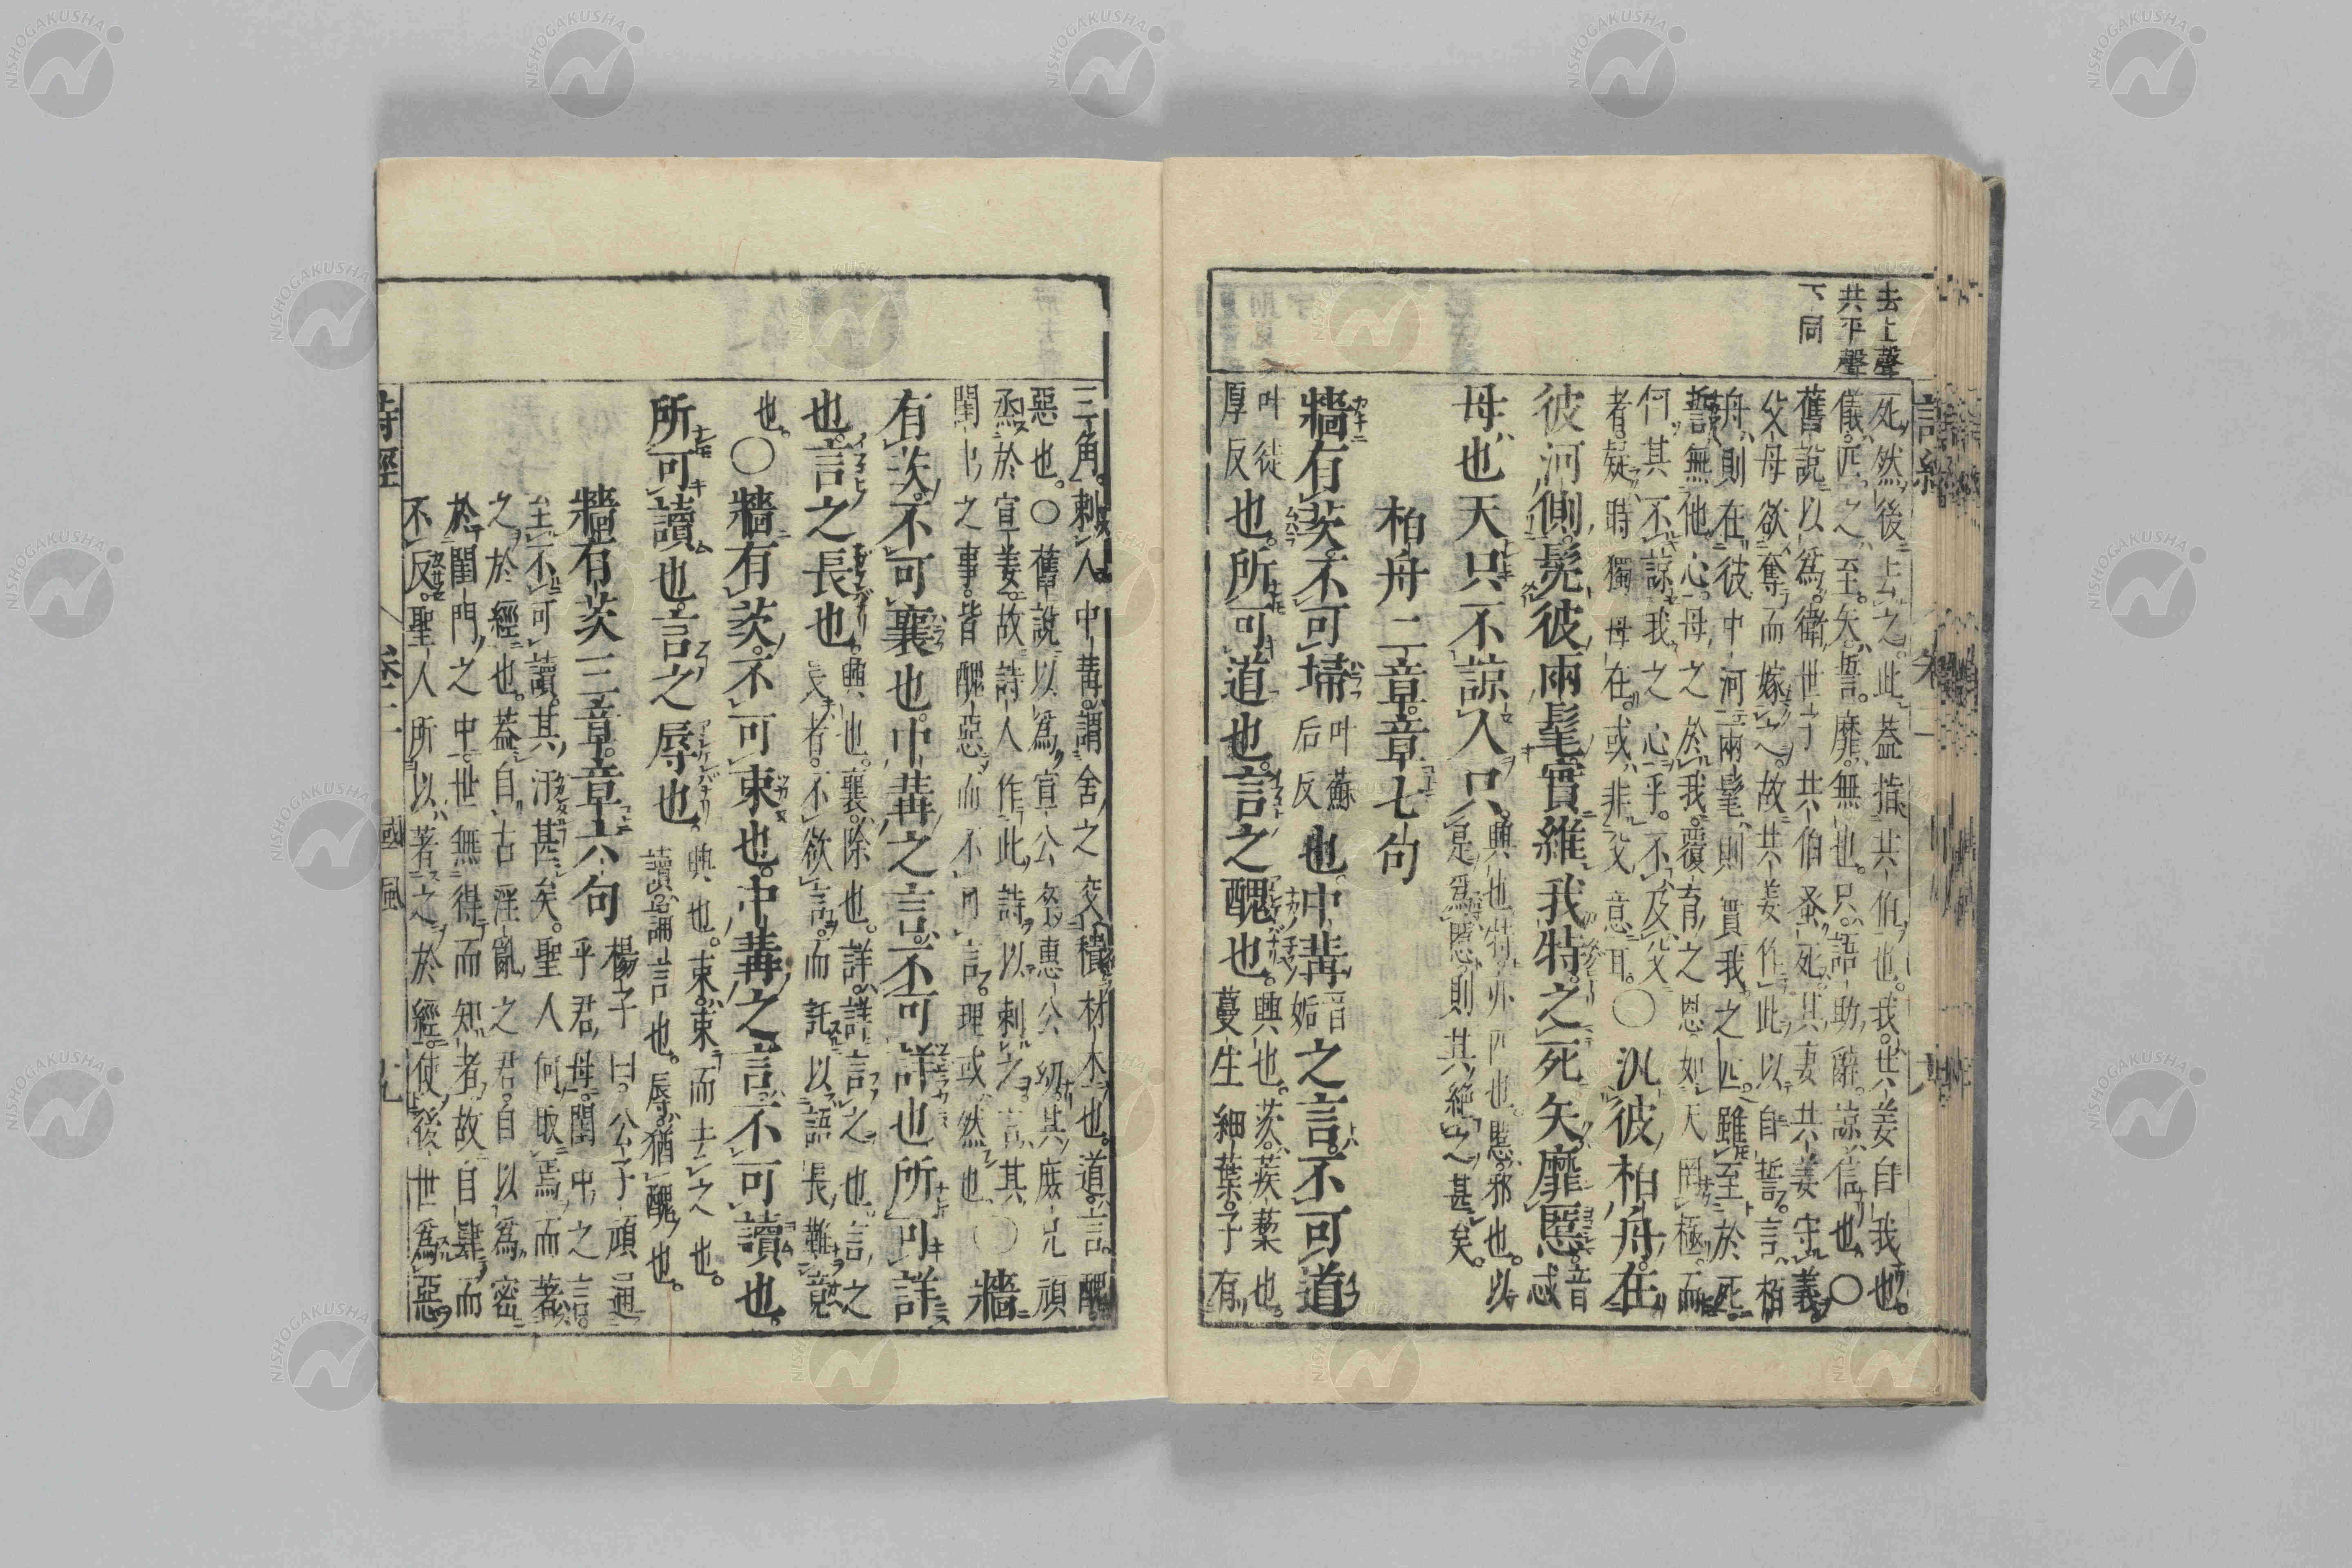 去上聲
共平聲
下同
死然後去之此蓋指共伯也我共姜自我也
儀匹之至矢誓靡無也只語助辭諒信也〇
舊說以爲衛世子共伯蚤死其妻共姜守義
父母欲奪而嫁之故共姜作此以自誓言栢
舟則在彼中河兩髦則實我之匹雖至於死
誓無他心母之於我覆育之恩如天罔極而
何其不諒我之心乎不及父
者疑時獨母在或非父意耳〇汎彼柏舟在
彼河側髧彼兩髦實維我特之死矢靡慝音忒
母也天只不諒人只興也特亦匹也慝邪也以
是爲慝則其絶之甚矣
柏舟二章章七句
牆有茨不可埽叶蘇后反也中冓音姤之言不可道
叶徒厚反也所可道也言之醜也興也茨蒺藜也
蔓生細葉子有
三角刺人中冓謂舍之交積材木也道言醜
惡也〇舊說以爲宣公卒惠公幼其庶兄頑
烝於宣姜故詩人作此詩以刺之言其
閨中之事皆醜惡而不可言理或然也〇牆
有茨不可襄也中冓之言不可詳也所可詳
也言之長也興也襄除也詳詳言之也言之
長者不欲言而託以語長難竟
也〇牆有茨不可束也中冓之言不可讀也
所可讀也言之辱也興也束束而去之也
讀誦言也辱猶醜也
牆有茨三章章六句楊子曰公子頑通
乎君母閨中之言
至不可讀其汙甚矣聖人何取焉而著
之於經也蓋自古淫亂之君自以爲密
於閨門之中世無得而知者故自肆而
不反聖人所以著之於經使後世爲惡
詩經 卷二 國風 九
NISHOGAKUSHA